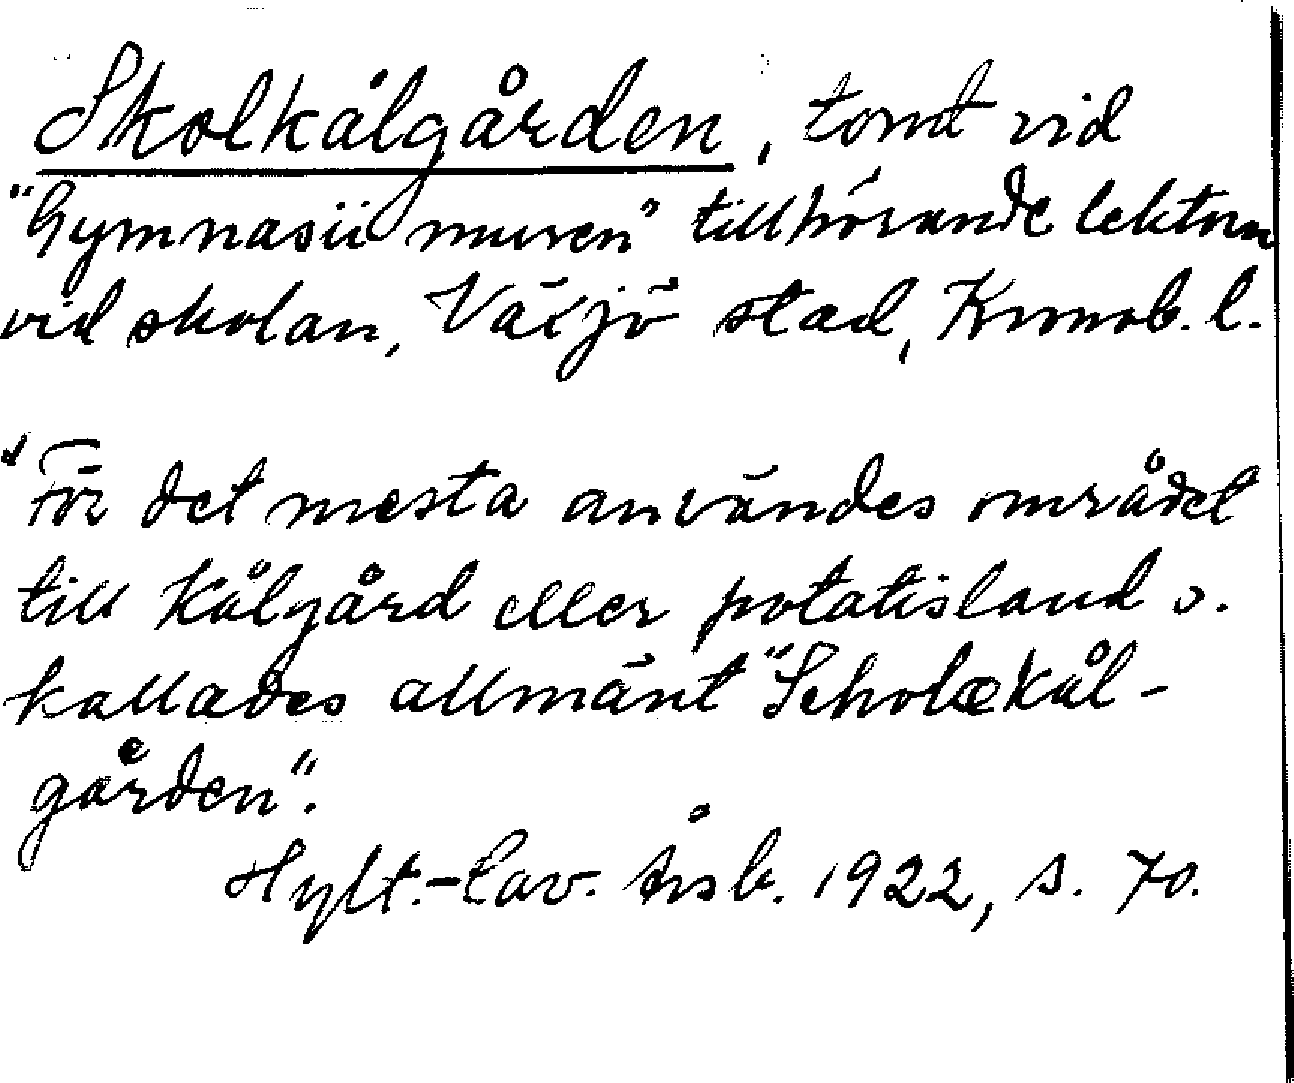 Skolkålgården, tomt vid
"Gymnasii muren" tillhörande lektorn
vid skolan, Växjö stad, Kronob. l.
"För det mesta användes området
till kålgård eller potatisland o.
kallades allmänt "Scholækål-
gården".
Hylt.-Cav. Årsb. 1922, s. 70.